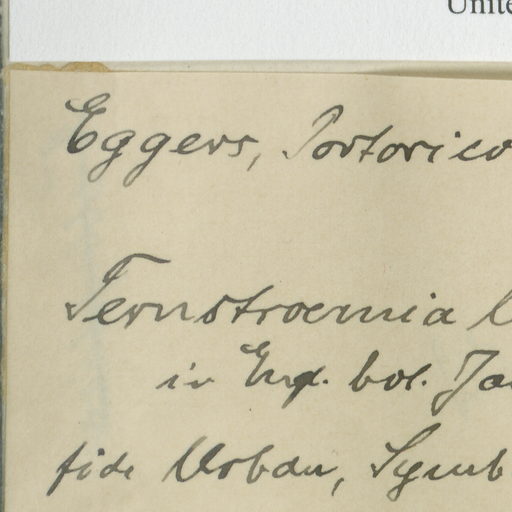 Unite
Eggers, Portorico
Ternstroemia
in Engl. bot. Ja
fide Urban, Symb